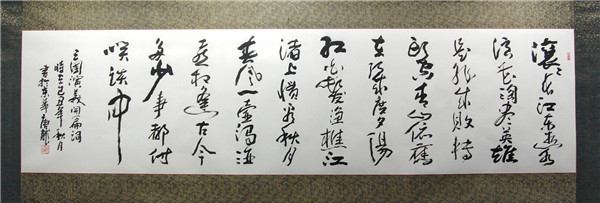 滚滚长江东逝水
浪花淘尽英雄
是非成败转
头空青山依旧
在几度夕陽
红白髮渔樵江
渚上惯看秋月
春风一壶浊酒
喜相逢古今
多少事都付
笑谈中
三国演義开篇词
時在己丑年秋月